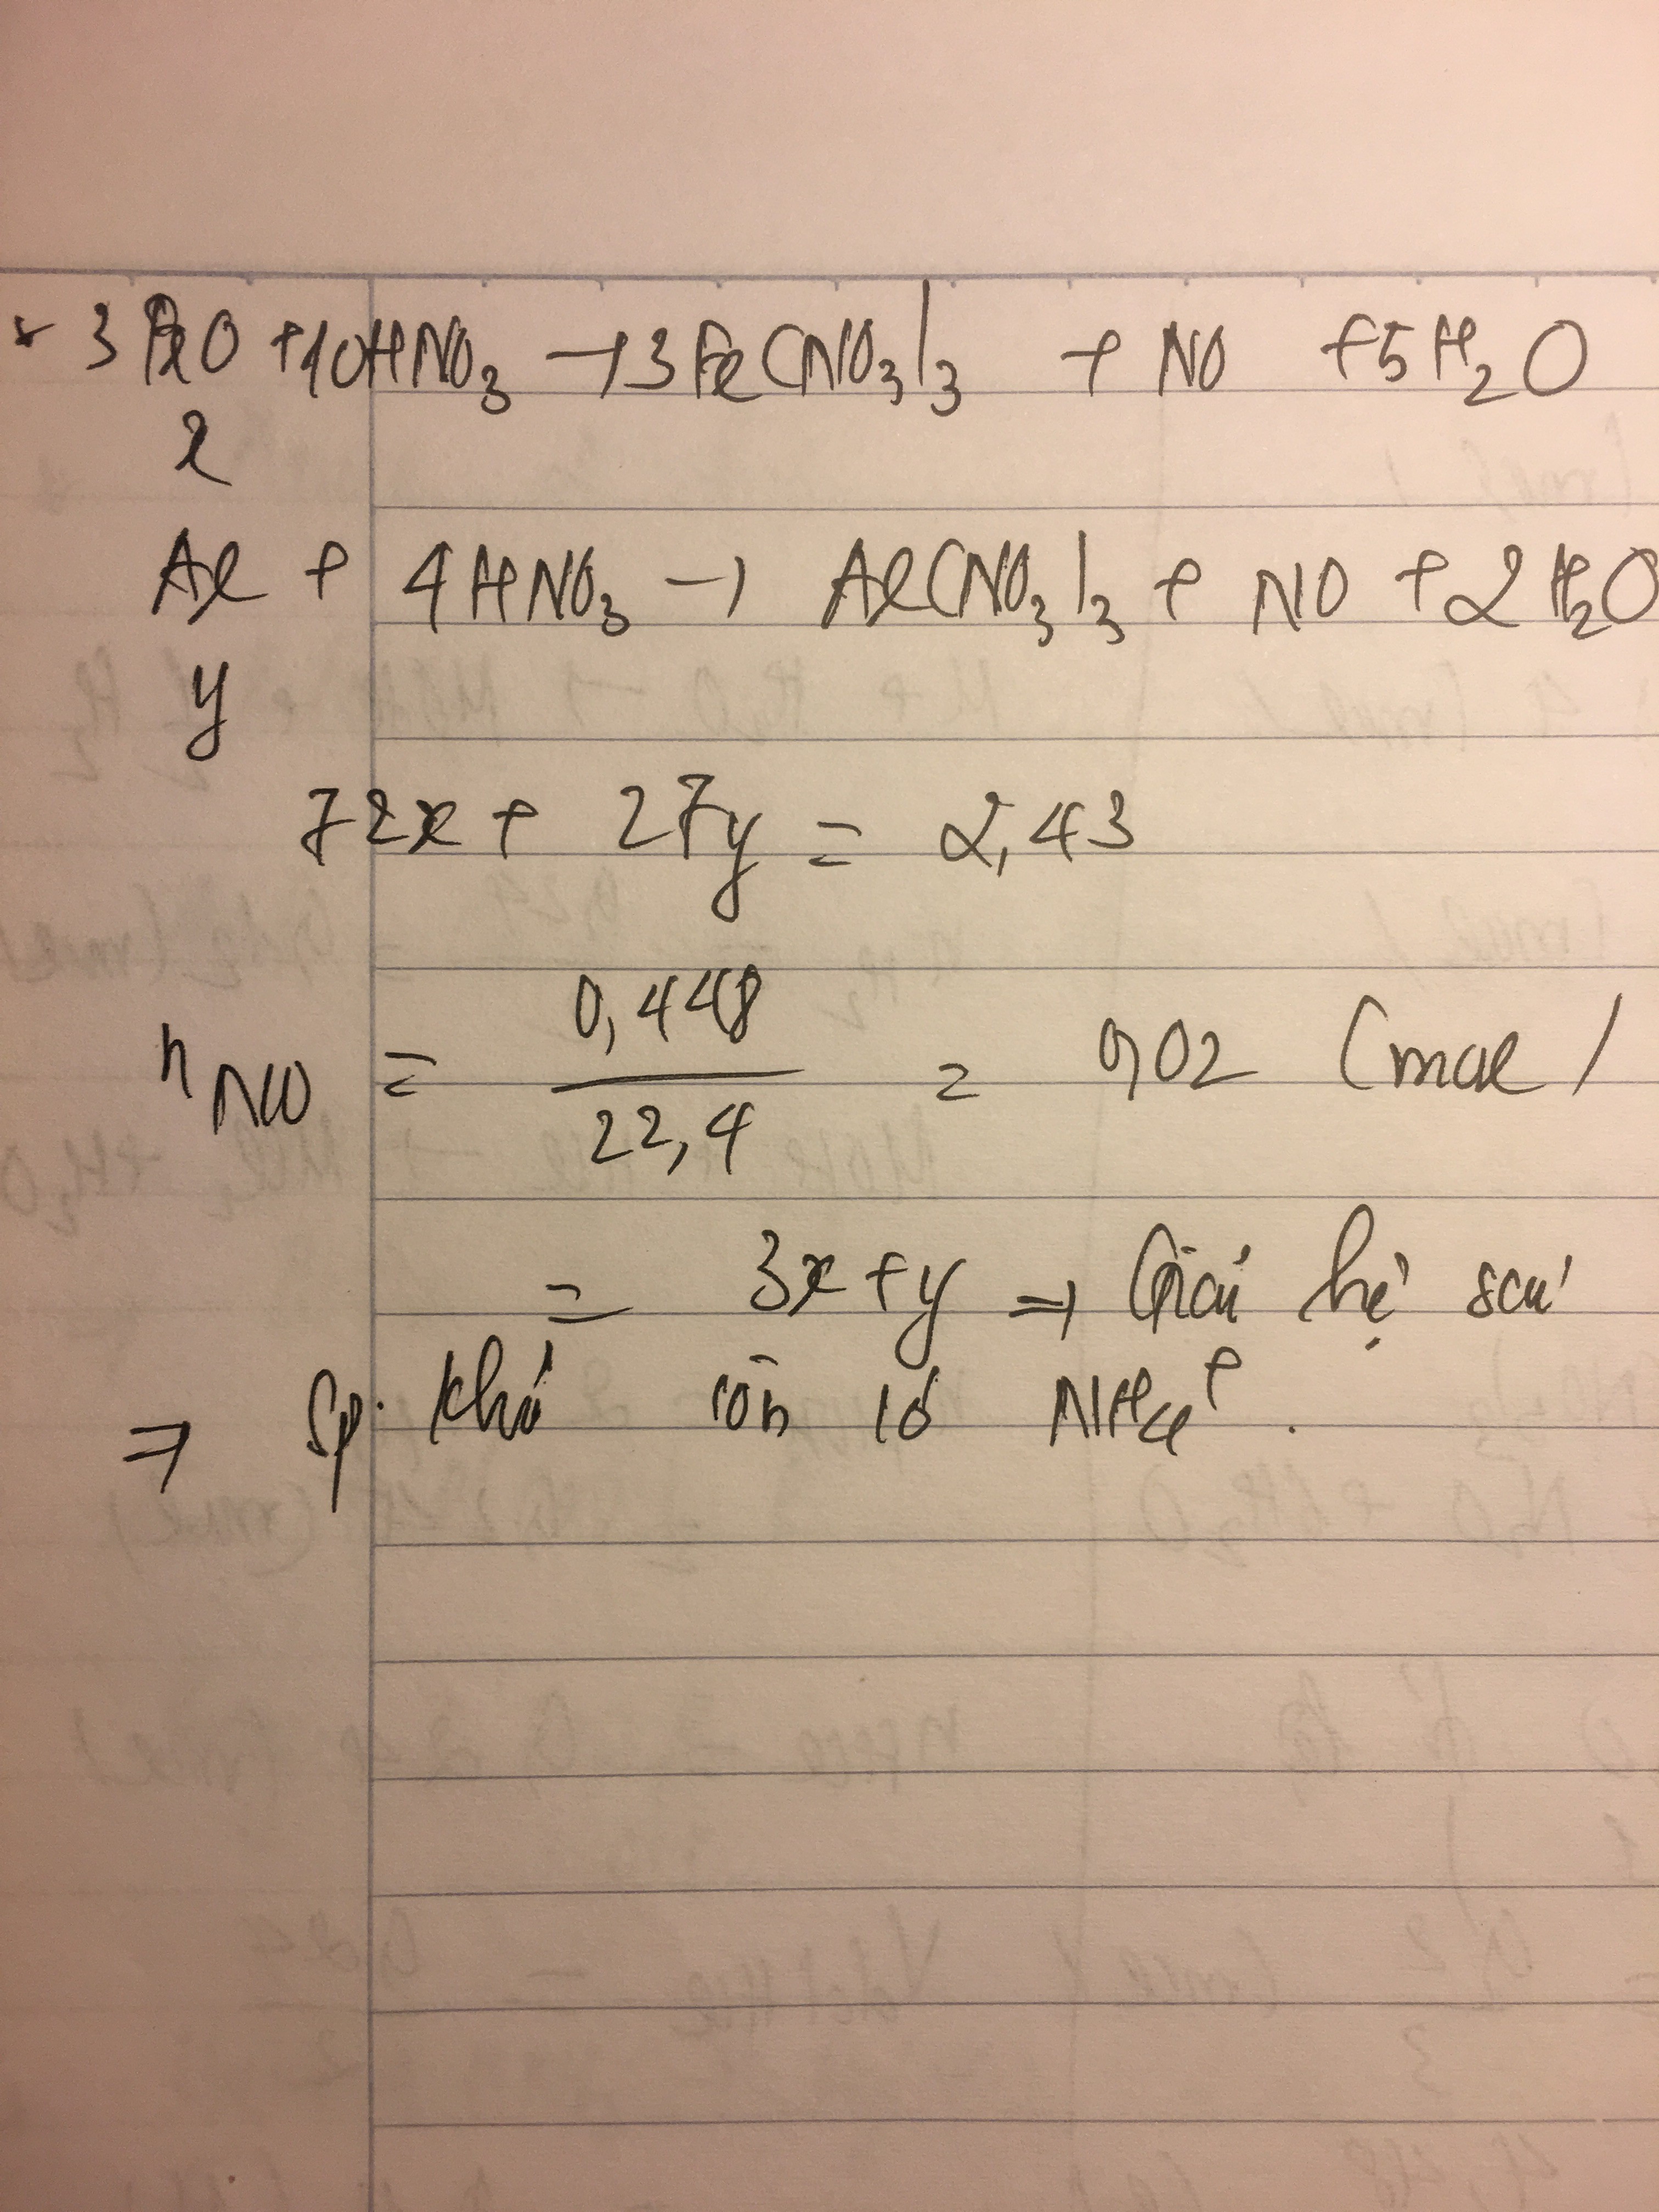 * 3FeO + 10HNO3 → 3Fe(NO3)3 + NO + 5H2O
x
Al + 4HNO3 → Al(NO3)3 + NO + 2H2O
y
72x + 27y = 2,43
nNO = 0,448 / 22,4 = 0,02 (mol)
= 3x + y ⇒ Giải hệ sai
⇒ Sp. khử còn có NH4+.